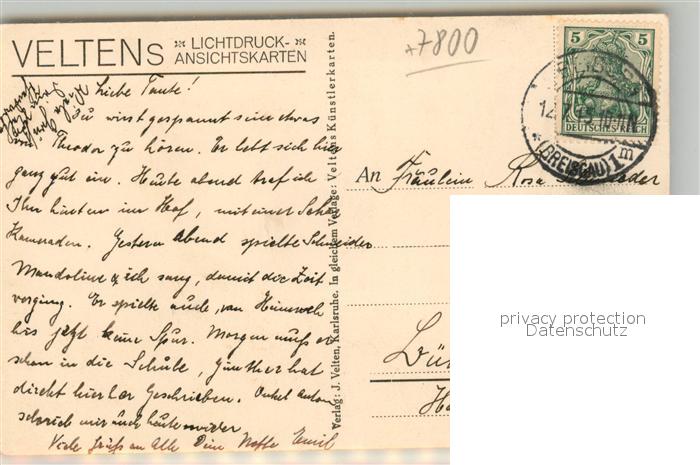 VELTENS LICHTDRUCK-
ANSICHTSKARTEN
+7800
5 5
DEUTSCHES REICH
(BREISGAU) 1 m
Liebe Tante!
Du wirst gespannt sein etwas
von Theodor zu hören. Er lebt sich hier
ganz gut ein. Heute abend traf ich
Ihn hinten im Hof, mit einer Schar
Kameraden. Gestern Abend spielte Schneider
Mandoline & ich sang, damit die Zeit
verging. Er spielte auch, von Heimweh
bis jetzt keine Spur. Morgen muss er
schon in die Schule, Günther hat
direkt hierher Geschrieben. Onkel Anton
schrieb mir auch heute wieder
Viele Grüsse an Alle Dein Neffe Emil
Verlag: J. Velten, Karlsruhe. In gleichem Verlage: Veltens Künstlerkarten.
An Fräulein Rosa
privacy protection
Datenschutz